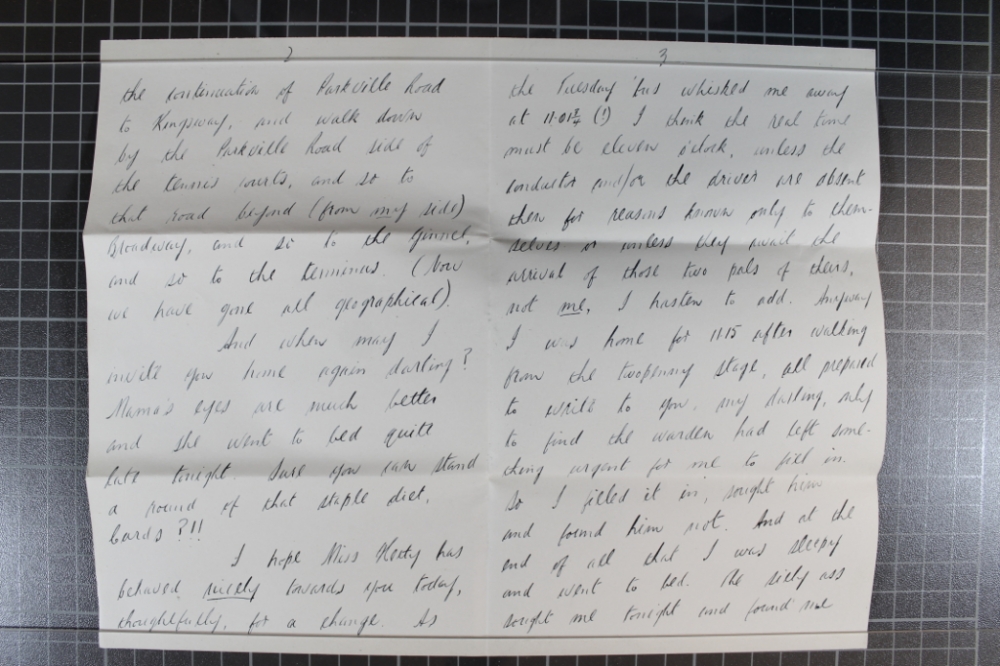 2
the continuation of Parkville Road
to Kingsway, and walk down
by the Parkville Road side of
the tennis courts, and so to
that road beyond (from my side)
Broadway, and so to the ginnel,
and so to the terminus. (Now
we have gone all geographical).
And when may I
invite you home again darling?
Mama's eyes are much better
and she went to bed quite
late tonight. Sure you can stand
a round of that staple diet,
cards?!!
I hope Miss has
behaved nicely towards you today,
thoughtfully, for a change. As
3
the Tuesday 'bus whisked me away
at 11.01¾ (!) I think the real time
must be eleven o'clock, unless the
conductor and/or the driver are absent
then for reasons known only to them-
selves or unless they await the
arrival of those two pals of theirs,
not me, I hasten to add. Anyway
I was home for 11.15 after walking
from the twopenny stage, all prepared
to write to you, my darling, only
to find the warden had left some-
thing urgent for me to fill in.
So I filled it in, sought him
and found him not. And at the
end of all that I was sleepy
and went to bed. The silly ass
sought me tonight and found me